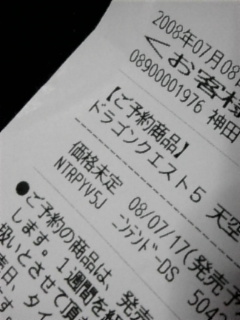 2008年07月08
＜お客様
08900001976 神田
【ご予約商品】
ドラゴンクエスト5 天空
08/07/17(発売予
価格未定 ﾆﾝﾃﾝﾄﾞｰDS
NTRPYV5J 5047
●ご予約の商品は、発売
します。1週間を経
扱いとさせて頂